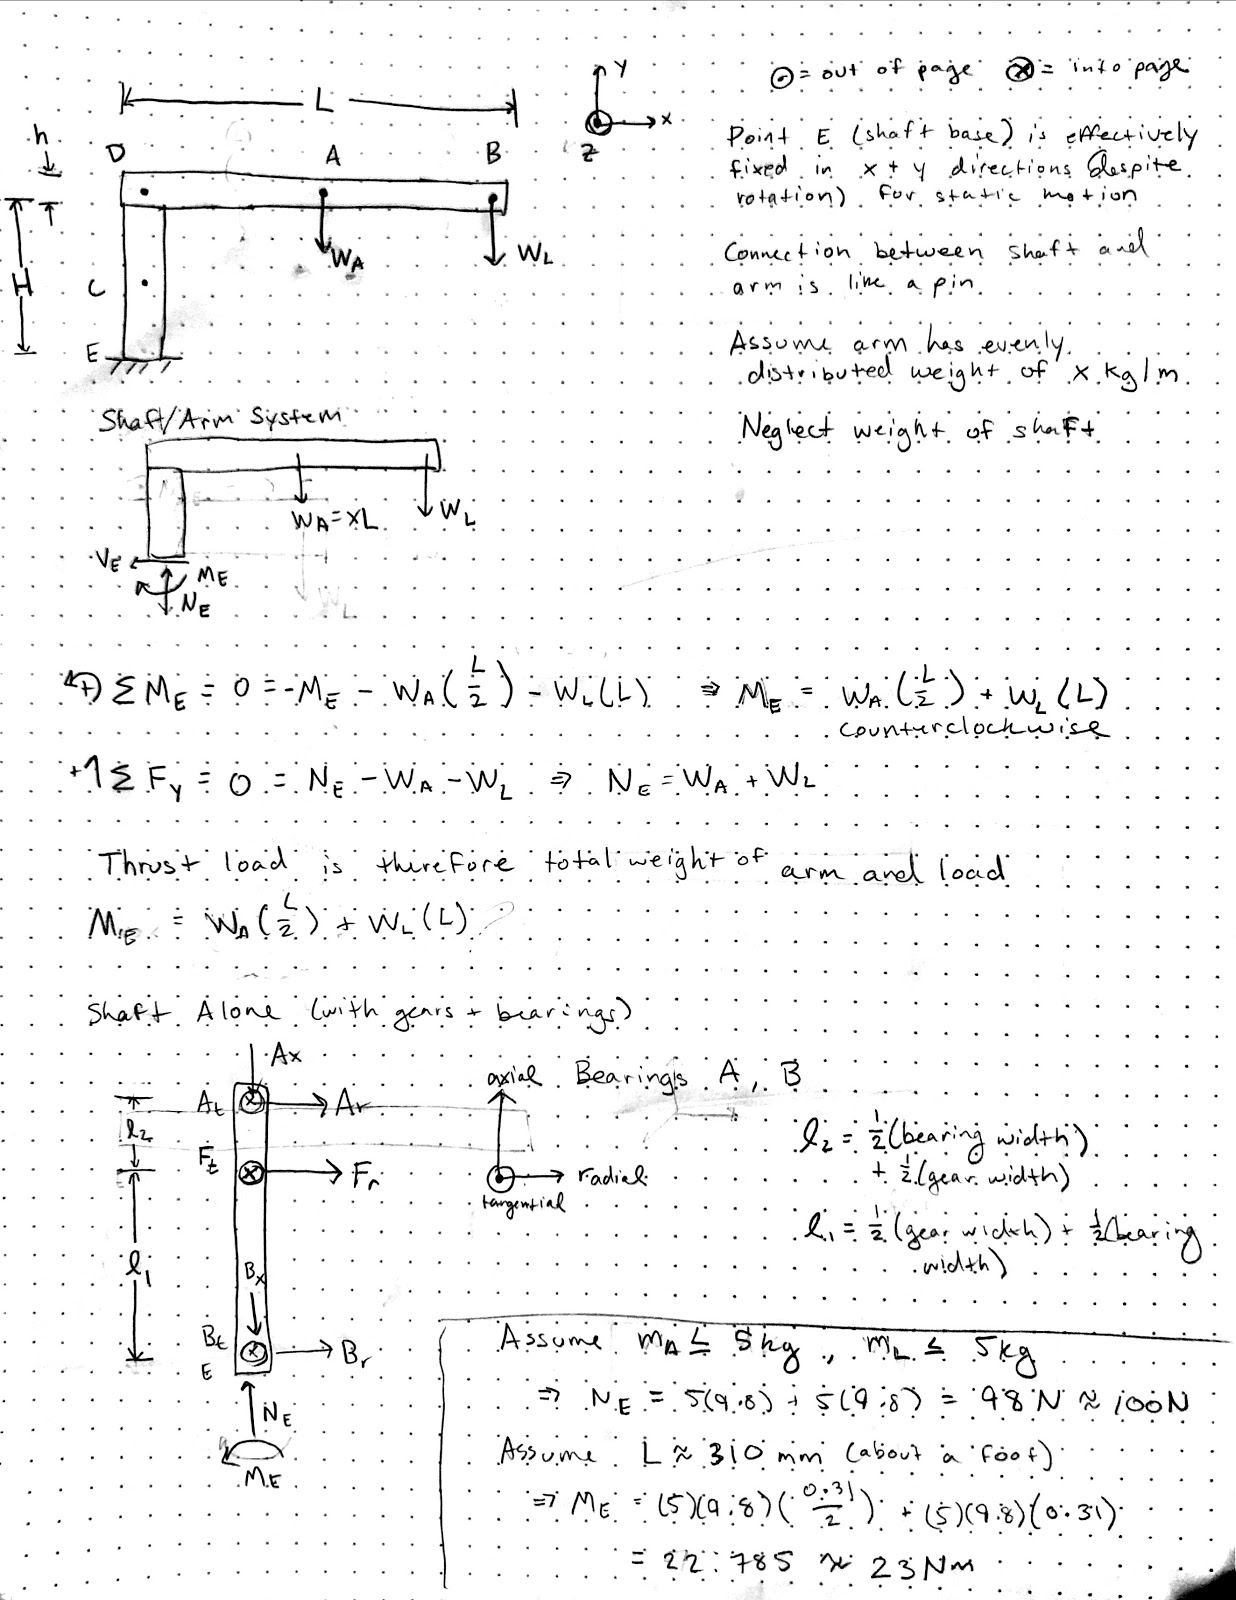 ⊙ = out of page ⊗ = into page
y
x
z
L
h
D A B
W_A
W_L
H
C
E
Point E (shaft base) is effectively
fixed in x + y directions (despite
rotation) for static motion
Connection between shaft and
arm is like a pin
Assume arm has evenly
distributed weight of x kg/m
Neglect weight of shaft
Shaft/Arm System
W_A = xL
W_L
V_E
M_E
N_E
W_L
↶+) Σ M_E = 0 = -M_E - W_A (L/2) - W_L (L) ⇒ M_E = W_A (L/2) + W_L (L)
counterclockwise
+↑ Σ F_y = 0 = N_E - W_A - W_L ⇒ N_E = W_A + W_L
Thrust load is therefore total weight of arm and load
M_E = W_A (L/2) + W_L (L)
Shaft Alone (with gears + bearings)
Ax
A_t
A_r
l_2
F_t
F_r
l_1
B_x
B_t
B_r
E
N_E
M_E
axial
radial
tangential
Bearings A, B
l_2 = 1/2 (bearing width)
+ 1/2 (gear width)
l_1 = 1/2 (gear width) + 1/2 (bearing
width)
Assume m_A ≤ 5kg, m_L ≤ 5kg
⇒ N_E = 5(9.8) + 5(9.8) = 98 N ≈ 100N
Assume L ≈ 310 mm (about a foot)
⇒ M_E = (5)(9.8)(0.31/2) + (5)(9.8)(0.31)
= 22.785 ≈ 23 Nm